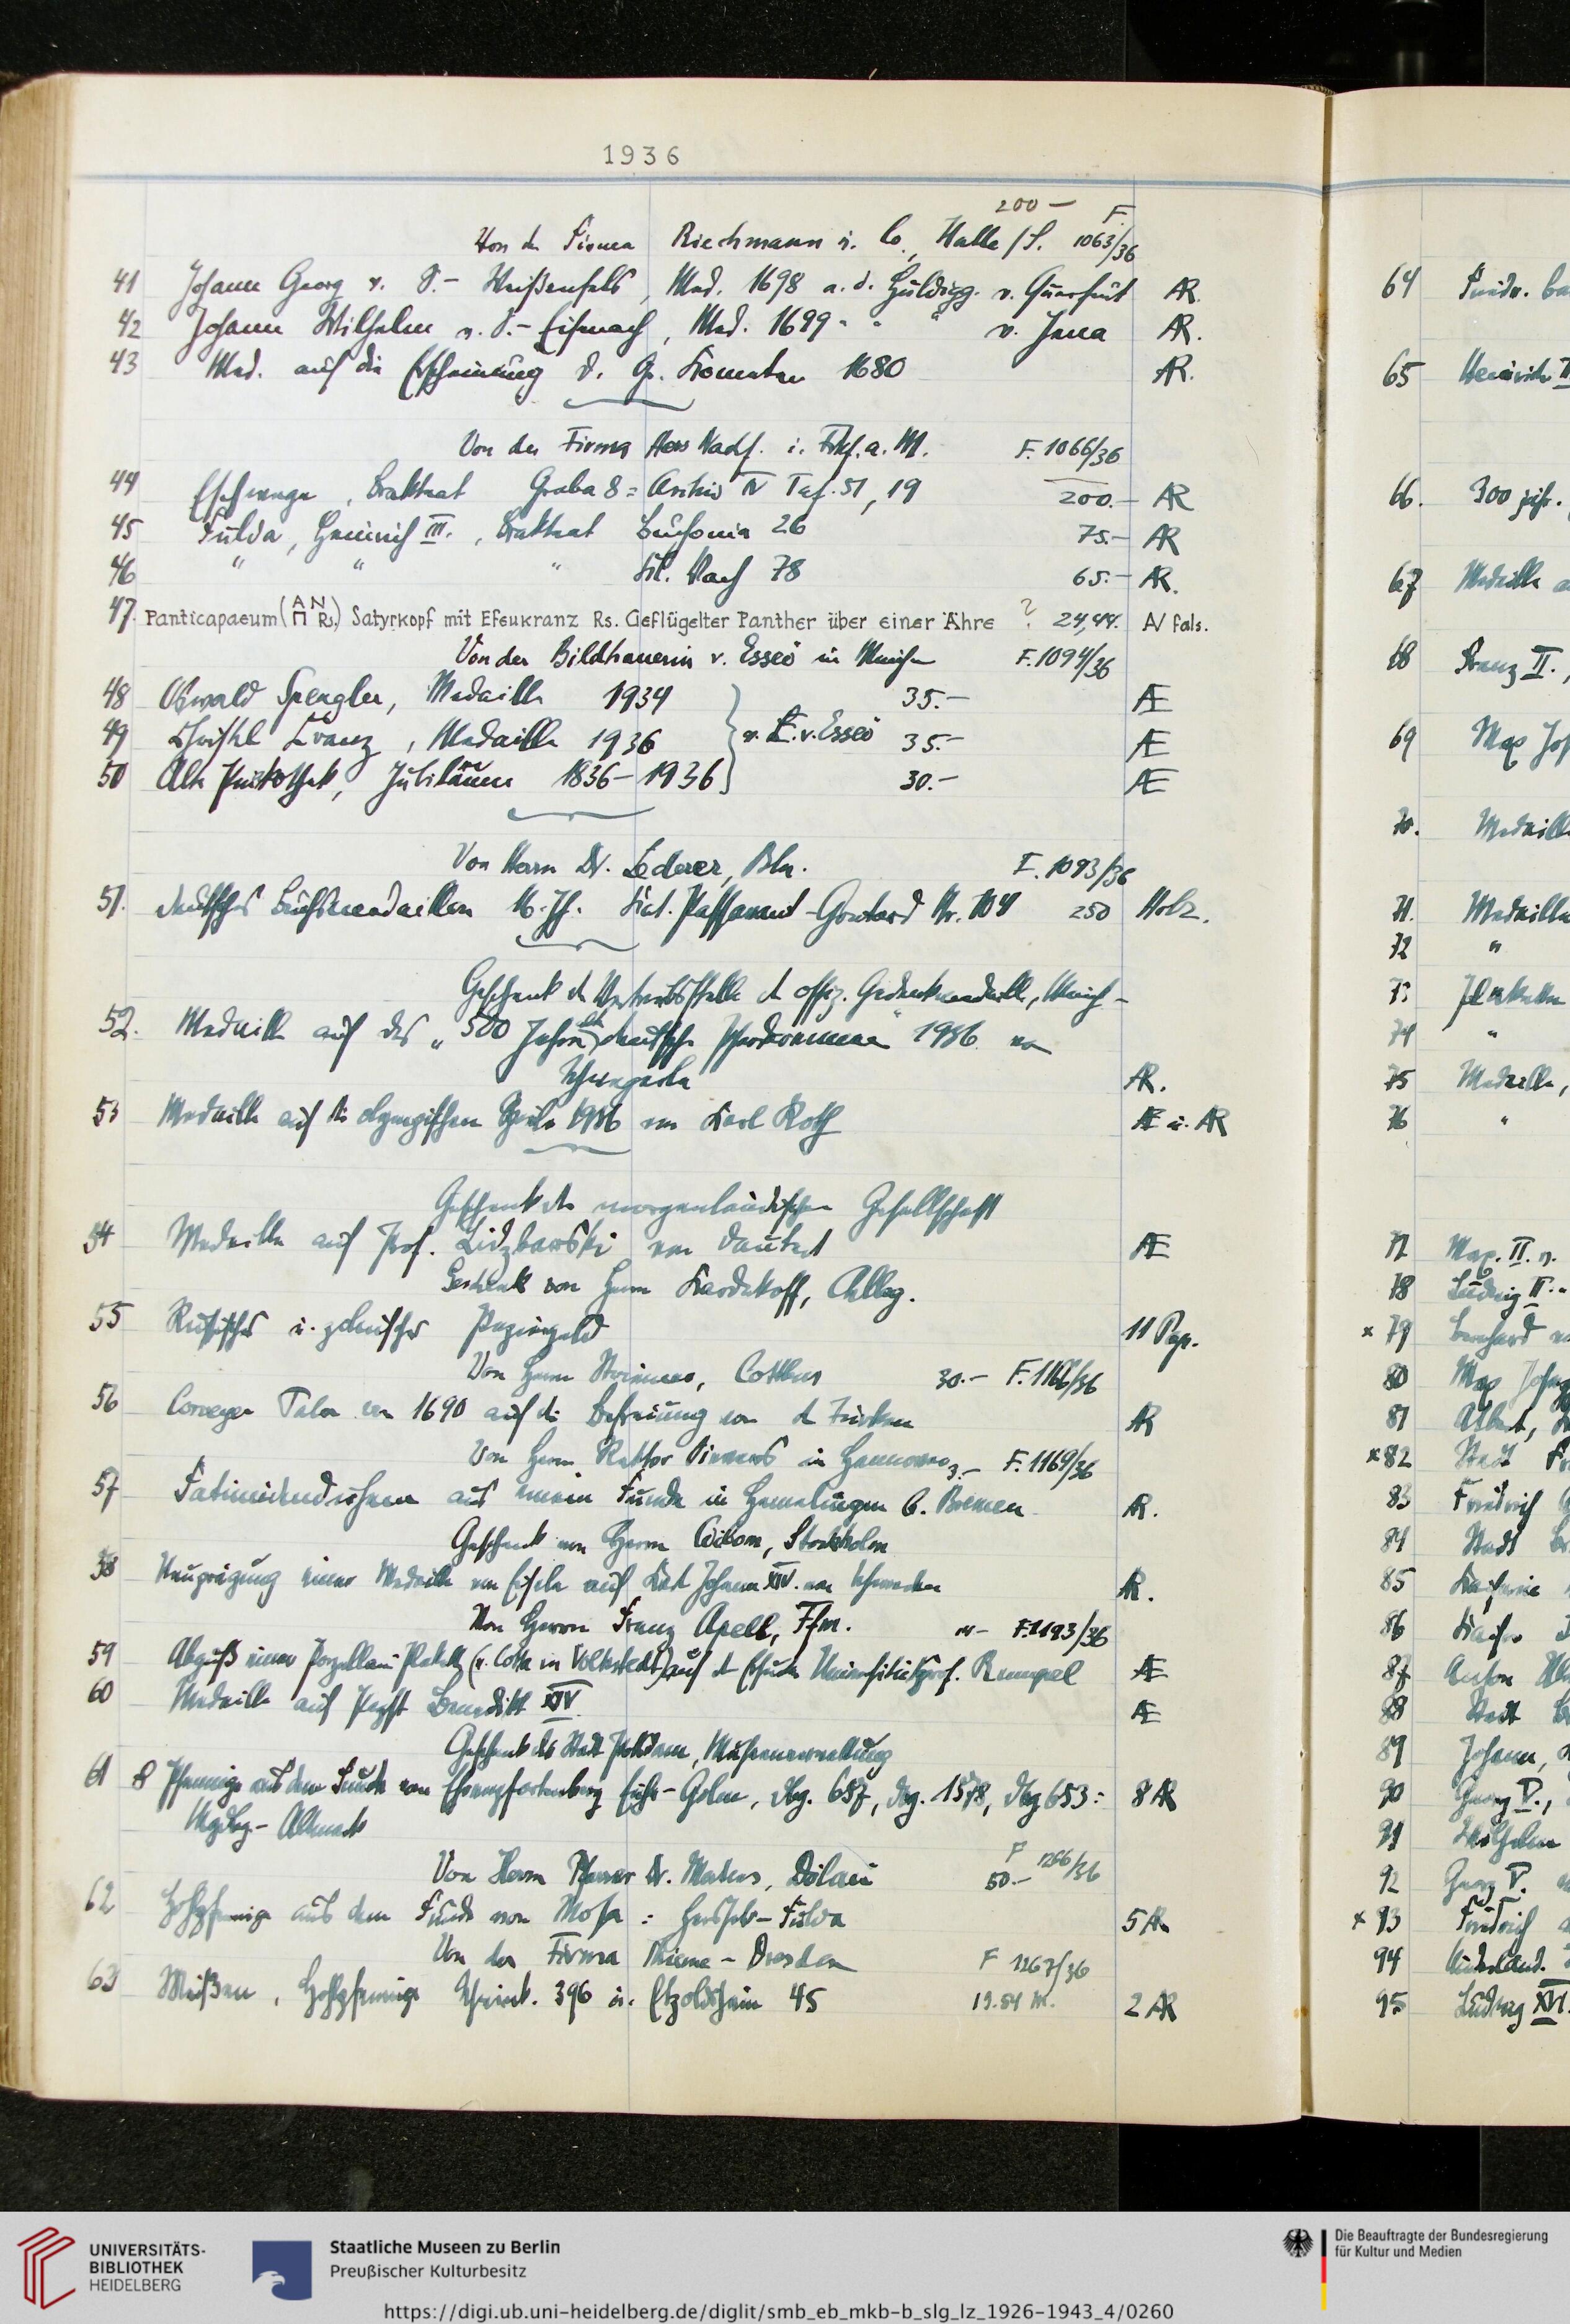 1936
200 —
Von der Firma Riechmann u. Co., Halle/S. F. 1063/36
41 Johann Georg v. S.- Weißenfels, Med. 1698 a. d. Huldigg. v. Querfurt AR.
42 Johann Wilhelm v. S.- Eisenach, Med. 1699 " " " v. Jena AR.
43 Med. auf die Erscheinung d. Gr. Kometen 1680 AR.
Von der Firma Hess Nachf. i. Frkf. a. M. F. 1066/36
44 Eschwege, Brakteat Graba 8 = Archiv IV Taf. 51, 19 200.- AR
45 Fulda, Heinrich III., Brakteat Buchonia 26 75.- AR
46 " " " Slg. Nach 78 65.- AR.
47. Panticapaeum (ΠAN Rs.) Satyrkopf mit Efeukranz Rs. Geflügelter Panther über einer Ähre ? 24,44. AV fals.
Von der Bildhauerin v. Esseö in München F. 1094/36
48 Oswald Spengler, Medaille 1934 35.- AE
49 Christl Cranz, Medaille 1936 v. E. v. Esseö 35.- AE
50 Alte Pinakothek, Jubiläum 1836-1936 30.- AE
Von Herrn Dr. Lederer, Bln. F. 1093/36
51. deutsches Buchsmedaillon 16. Jh. Passavant-Gontard Nr. 104 250 Holz.
Geschenk d. Vertriebsstelle d. offiz. Gedenkmedaille, Münch-
52. Medaille auf das "500 Jahre deutsche 1936 von
AR.
53 Medaille auf die olympischen Spiele 1936 von Karl Roth AE u. AR
Geschenk der morgenländischen Gesellschaft
54 Medaille auf Prof. Lidzbarski von Dautert AE
Geschenk von Herrn Kardakoff, Abllg.
55 Russisches u. Papiergeld 11 Pap.
Von Herrn Cottbus 30.- F. 1166/36
56 Corveyer Taler von 1690 auf die Befreiung von d. Türken AR
Von Herrn Rektor in Hannover 3.- F. 1169/36
57 Fatimidendirhem aus einem Funde in Hemelingen b. Bremen AR.
Geschenk von Herrn Stockholm
58 Neuprägung einer Medaille von auf Karl Johann XIV. von Schweden AR.
Von Herrn Franz Apell, Ffm. F. 1193/36
59 Abguß einer Porzellan Plakette (v. Cotta in Volkstedt) auf d. Universitätsprof. Rempel AE
60 Medaille auf Papst Benedikt XIV. AE
Geschenk der Stadt Potsdam, Museumsverwaltung
61 8 Pfennige aus dem Funde vom Ehrenpfortenberg Eiche-Golm, dbg. 657, dbg. 1578, dbg 653: 8 AR
Mgdbg-Altmark
Von Herrn Pfarrer Dr. Dölau F 1266/36
50.-
62 Hohlpfennige aus dem Funde von Mosa: Hersfeld-Fulda 5 AR
Von der Firma Thieme-Dresden F 1267/36
63 Meißen, Hohlpfennige Schwink. 396 u. Etzoldshain 45 19.54 M. 2 AR
64
65 Heinrich
66. 300
67 Medaille
68 Franz II.,
69 Max Jos
70. Medaille
71. Medaille
72 "
73 Plakette
74 "
75 Medaille,
76 "
77 Max. II. v.
78 Ludwig II. "
x 79 Bernhard
80 Max Joseph
81 Albert,
x 82 Stadt
83 Friedrich
84 Stadt
85
86 Kaiser
87 Anton
88 Stadt
89 Johann,
90 Georg V.,
91 Wilhelm
92 Georg V.
x 93 Friedrich
94 Niederland.
95 Ludwig XVI.
UNIVERSITÄTS-
BIBLIOTHEK
HEIDELBERG
Staatliche Museen zu Berlin
Preußischer Kulturbesitz
Die Beauftragte der Bundesregierung
für Kultur und Medien
https://digi.ub.uni-heidelberg.de/diglit/smb_eb_mkb-b_slg_lz_1926-1943_4/0260